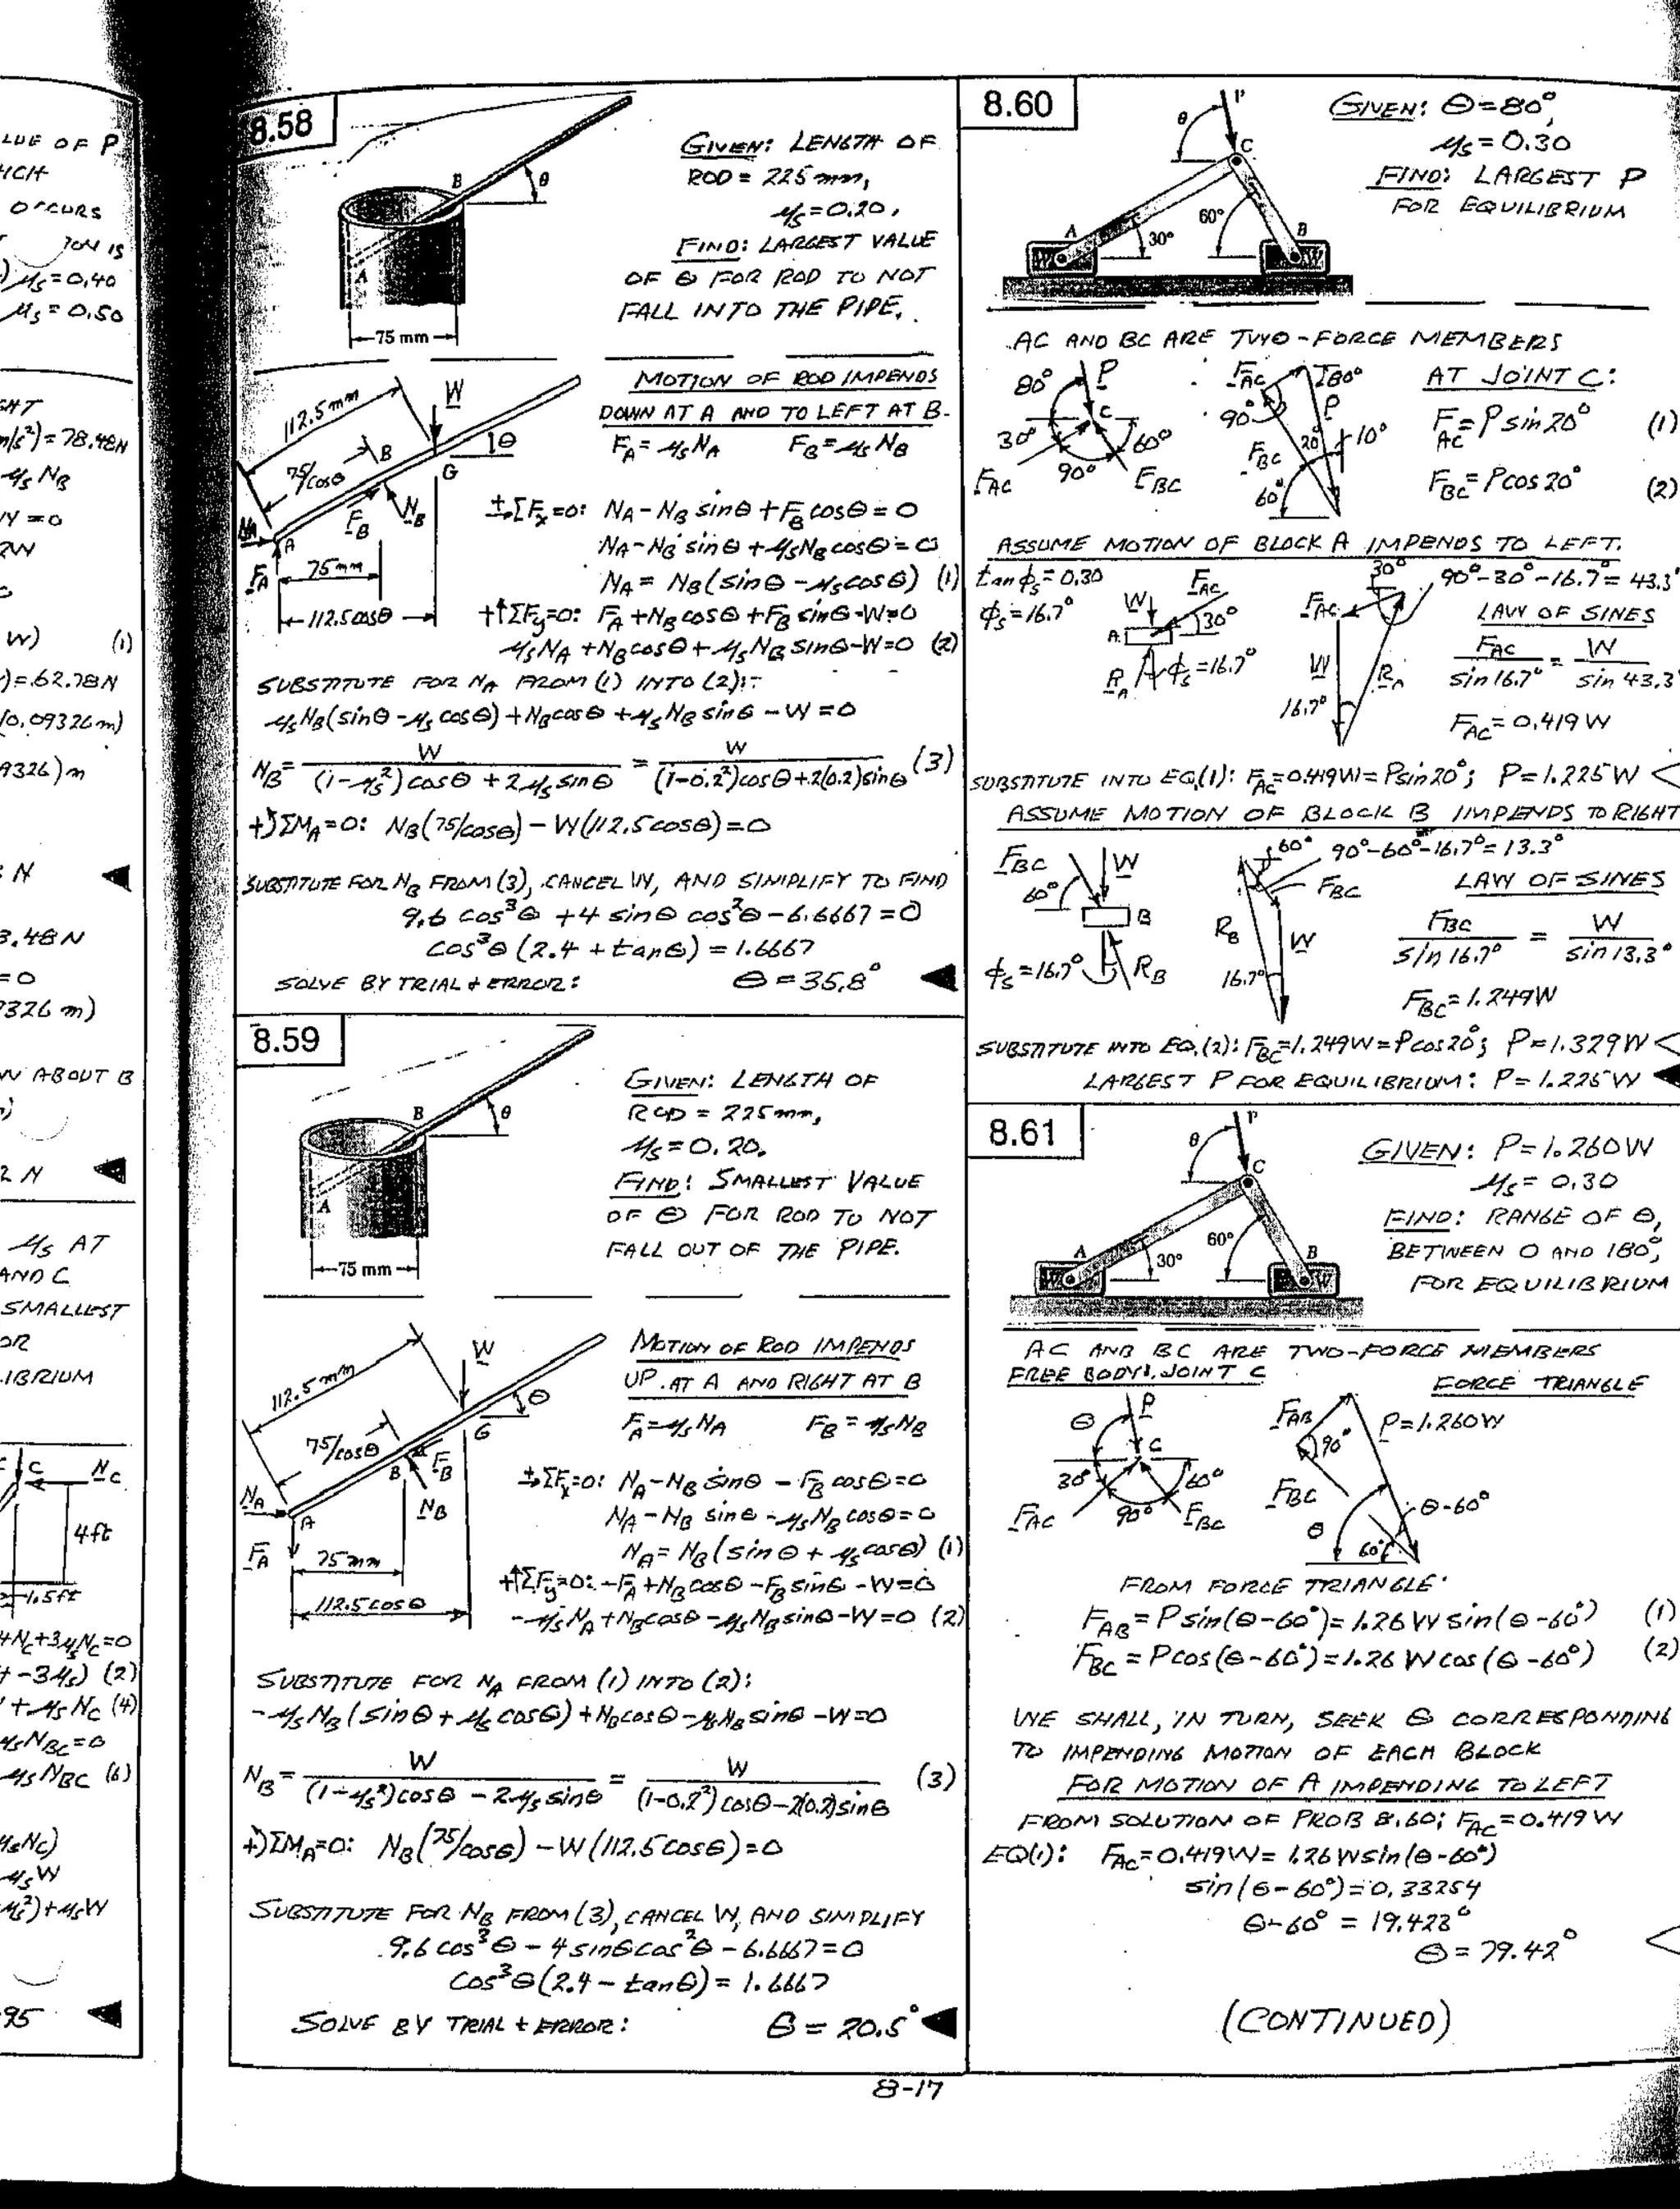 LUE OF P
HICH
OCCURS
ION IS
μs=0.40
μs=0.50
m/s²)=78.48N
μs NB
W) (1)
)=62.78N
(0.09326m)
9326)m
N
3.48N
=0
9326 m)
W ABOUT B
2 N
μs AT
AND C
SMALLEST
OR
IBRIUM
C NC
4ft
1.5ft
+NC+3μsNC=0
-3μs) (2)
+μsNC (4)
μsNBC=0
μsNBC (6)
μsNC)
μsW
μs²)+μsW
95
8.58
B
θ
A
75 mm
GIVEN: LENGTH OF
ROD = 225 mm,
μs=0.20,
FIND: LARGEST VALUE
OF θ FOR ROD TO NOT
FALL INTO THE PIPE.
MOTION OF ROD IMPENDS
DOWN AT A AND TO LEFT AT B.
FA=μsNA FB=μsNB
112.5mm
W
75/cosθ
B
θ
G
NA
A
FB
NB
FA
75mm
112.5cosθ
+→ΣFx=0: NA-NB sinθ+FBcosθ=0
NA-NB sinθ+μsNBcosθ=0
NA=NB(sinθ-μscosθ) (1)
+↑ΣFy=0: FA+NBcosθ+FB sinθ-W=0
μsNA+NBcosθ+μsNB sinθ-W=0 (2)
SUBSTITUTE FOR NA FROM (1) INTO (2):
μsNB(sinθ-μs cosθ)+NBcosθ+μsNB sinθ-W=0
NB= W/((1-μs²)cosθ+2μs sinθ) = W/((1-0.2²)cosθ+2(0.2)sinθ) (3)
+↺ΣMA=0: NB(75/cosθ)-W(112.5cosθ)=0
SUBSTITUTE FOR NB FROM (3), CANCEL W, AND SIMPLIFY TO FIND
9.6 cos³θ+4 sinθ cos²θ-6.6667=0
cos³θ(2.4+tanθ)=1.6667
SOLVE BY TRIAL + ERROR: θ=35.8°
8.59
B
θ
A
75 mm
GIVEN: LENGTH OF
ROD = 225mm,
μs=0.20.
FIND: SMALLEST VALUE
OF θ FOR ROD TO NOT
FALL OUT OF THE PIPE.
MOTION OF ROD IMPENDS
UP AT A AND RIGHT AT B
FA=μsNA FB=μsNB
112.5mm
W
75/cosθ
G
θ
B
FB
NA
A
NB
FA
75mm
112.5cosθ
+→ΣFx=0: NA-NB sinθ-FB cosθ=0
NA-NB sinθ-μsNBcosθ=0
NA=NB(sinθ+μscosθ) (1)
+↑ΣFy=0: -FA+NBcosθ-FB sinθ-W=0
-μsNA+NBcosθ-μsNBsinθ-W=0 (2)
SUBSTITUTE FOR NA FROM (1) INTO (2):
-μsNB(sinθ+μs cosθ)+NBcosθ-μsNB sinθ-W=0
NB= W/((1-μs²)cosθ-2μs sinθ) = W/((1-0.2²)cosθ-2(0.2)sinθ) (3)
+↺ΣMA=0: NB(75/cosθ)-W(112.5cosθ)=0
SUBSTITUTE FOR NB FROM (3), CANCEL W, AND SIMPLIFY
9.6 cos³θ-4sinθcos²θ-6.6667=0
cos³θ(2.4-tanθ)=1.6667
SOLVE BY TRIAL + ERROR: θ=20.5°
8.60
P
θ
C
60°
A
30°
B
W
W
GIVEN: θ=80°,
μs=0.30
FIND: LARGEST P
FOR EQUILIBRIUM
AC AND BC ARE TWO-FORCE MEMBERS
80°
P
C
30°
60°
90°
FAC
FBC
FAC
80°
90°
P
FBC
20°
10°
60°
AT JOINT C:
FAC=P sin20° (1)
FBC=P cos20° (2)
ASSUME MOTION OF BLOCK A IMPENDS TO LEFT.
tanφs=0.30
φs=16.7°
W
FAC
30°
A
RA
φs=16.7°
30°
90°-30°-16.7°=43.3°
FAC
W
RA
16.7°
LAW OF SINES
FAC/sin16.7°=W/sin 43.3°
FAC=0.419W
SUBSTITUTE INTO EQ.(1): FAC=0.419W=Psin20°; P=1.225W
ASSUME MOTION OF BLOCK B IMPENDS TO RIGHT
FBC
W
60°
B
φs=16.7°
RB
60°
90°-60°-16.7°=13.3°
FBC
RB
W
16.7°
LAW OF SINES
FBC/sin16.7° = W/sin13.3°
FBC=1.249W
SUBSTITUTE INTO EQ.(2): FBC=1.249W=Pcos20°; P=1.329W
LARGEST P FOR EQUILIBRIUM: P=1.225W
8.61
P
θ
C
60°
A
30°
B
W
W
GIVEN: P=1.260W
μs=0.30
FIND: RANGE OF θ,
BETWEEN 0 AND 180°,
FOR EQUILIBRIUM
AC AND BC ARE TWO-FORCE MEMBERS
FREE BODY: JOINT C
FORCE TRIANGLE
P
θ
C
30°
60°
90°
FAC
FBC
FAB
90°
P=1.260W
FBC
θ
θ-60°
60°
FROM FORCE TRIANGLE:
FAB=Psin(θ-60°)=1.26Wsin(θ-60°) (1)
FBC=Pcos(θ-60°)=1.26Wcos(θ-60°) (2)
WE SHALL, IN TURN, SEEK θ CORRESPONDING
TO IMPENDING MOTION OF EACH BLOCK
FOR MOTION OF A IMPENDING TO LEFT
FROM SOLUTION OF PROB 8.60: FAC=0.419W
EQ(1): FAC=0.419W=1.26Wsin(θ-60°)
sin(θ-60°)=0.33254
θ-60°=19.423°
θ=79.42°
(CONTINUED)
8-17